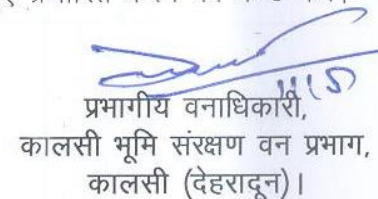 प्रभागीय वनाधिकारी,
कालसी भूमि संरक्षण वन प्रभाग,
कालसी (देहरादून)।